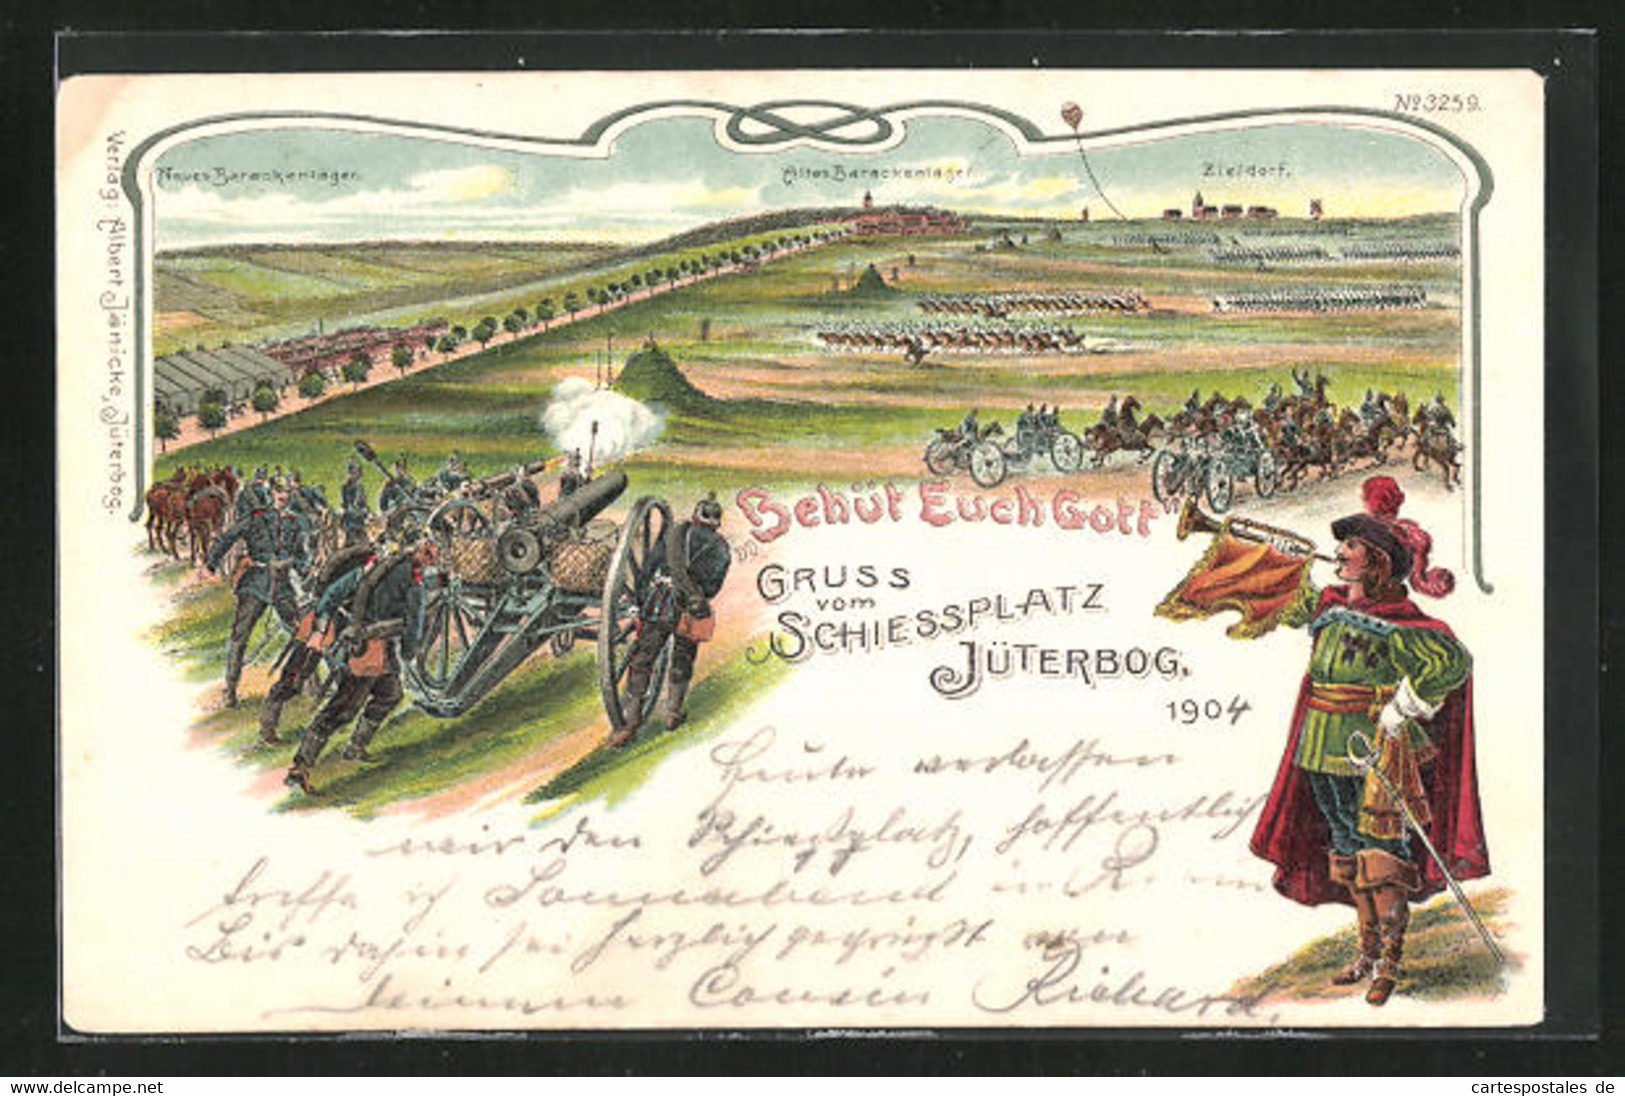 Nº 3259.
Neues Barackenlager.
Altes Barackenlager.
Zieldorf.
Verlag: Albert Jänicke, Jüterbog.
„Behüt Euch Gott"
GRUSS
vom
SCHIESSPLATZ
JÜTERBOG.
1904
Heute verlassen
wir den Schießplatz, hoffentlich
treffe ich Sonnabend in R. ein
Bis dahin sei herzlich gegrüßt von
deinem Cousin Richard.
www.delcampe.net
cartespostales de